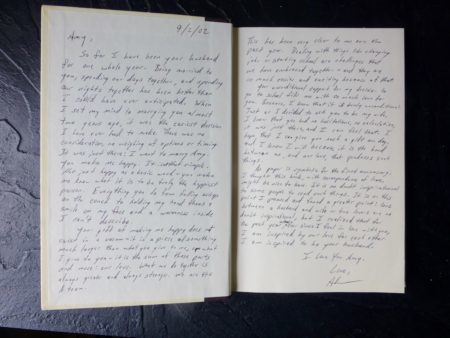 9/2/02
Amy,
So far I have been your husband
for one whole year. Being married to
you, spending our days together, and spending
our nights together has been better than
I could have ever anticipated. When
I set my mind to marrying you almost
two years ago, it was the easiest decision
I have ever had to make. There was no
consideration, no weighing of options or timing.
It was just there: I want to marry Amy.
You make me happy. In
just happy as a basic word - you make
me know what it is to be truly the happiest
person. Everything you do from
on the couch to holding my hand there's
a smile on my face and a warmness inside
I can't describe.
Your gift of making me happy does not
exist in a vacuum - it is a piece of something
much larger than what you give to me, or what
I give to you - it is the sum of those parts
and more: our love. What we do together is
always greater and always stronger. We are the
A team.
This has been very clear to me over the
past year. Dealing with things like changing
jobs or starting school are challenges that
we have endured together and they are
so much easier and exciting because of that.
Your unconditional support for my decision to
go to school fills me with so much love for
you because I know that it is truly unconditional.
Just as I decided to ask you to be my wife,
I knew that you had no hesitations, no reservations,
it was just there, and I can feel that. I
hope that I can give you such a gift one day,
and I know I will because it is the bond
between us, and our love that produces such
things.
As paper is symbolic for the first anniversary,
I thought this book, with corresponding art,
might be nice to have. It is no doubt inspirational
to some people to read such things. It is at this
point I paused and found a poetic point: love
between a husband and wife - our love - is no
doubt inspirational, but I realized that for
the past year, ever since I fell in love with you,
I am inspired by our love for each other.
I am inspired to be your husband.
I Love You Amy.
Love,